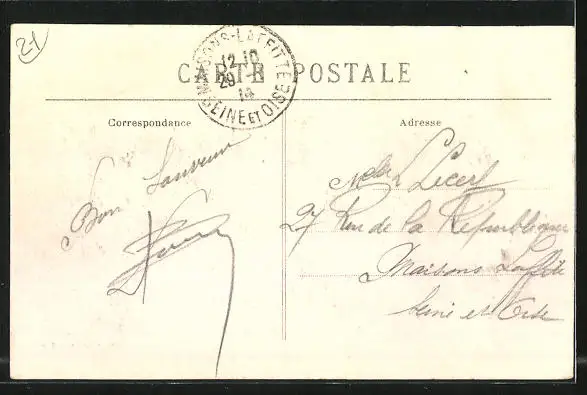 21
MAISONS-LAFFITTE
12 10
29
14
SEINE ET OISE
CARTE POSTALE
Correspondance
Bon Souvenir
Adresse
Lecerf
27 Rue de la République
Maisons Laffitte
Seine et Oise